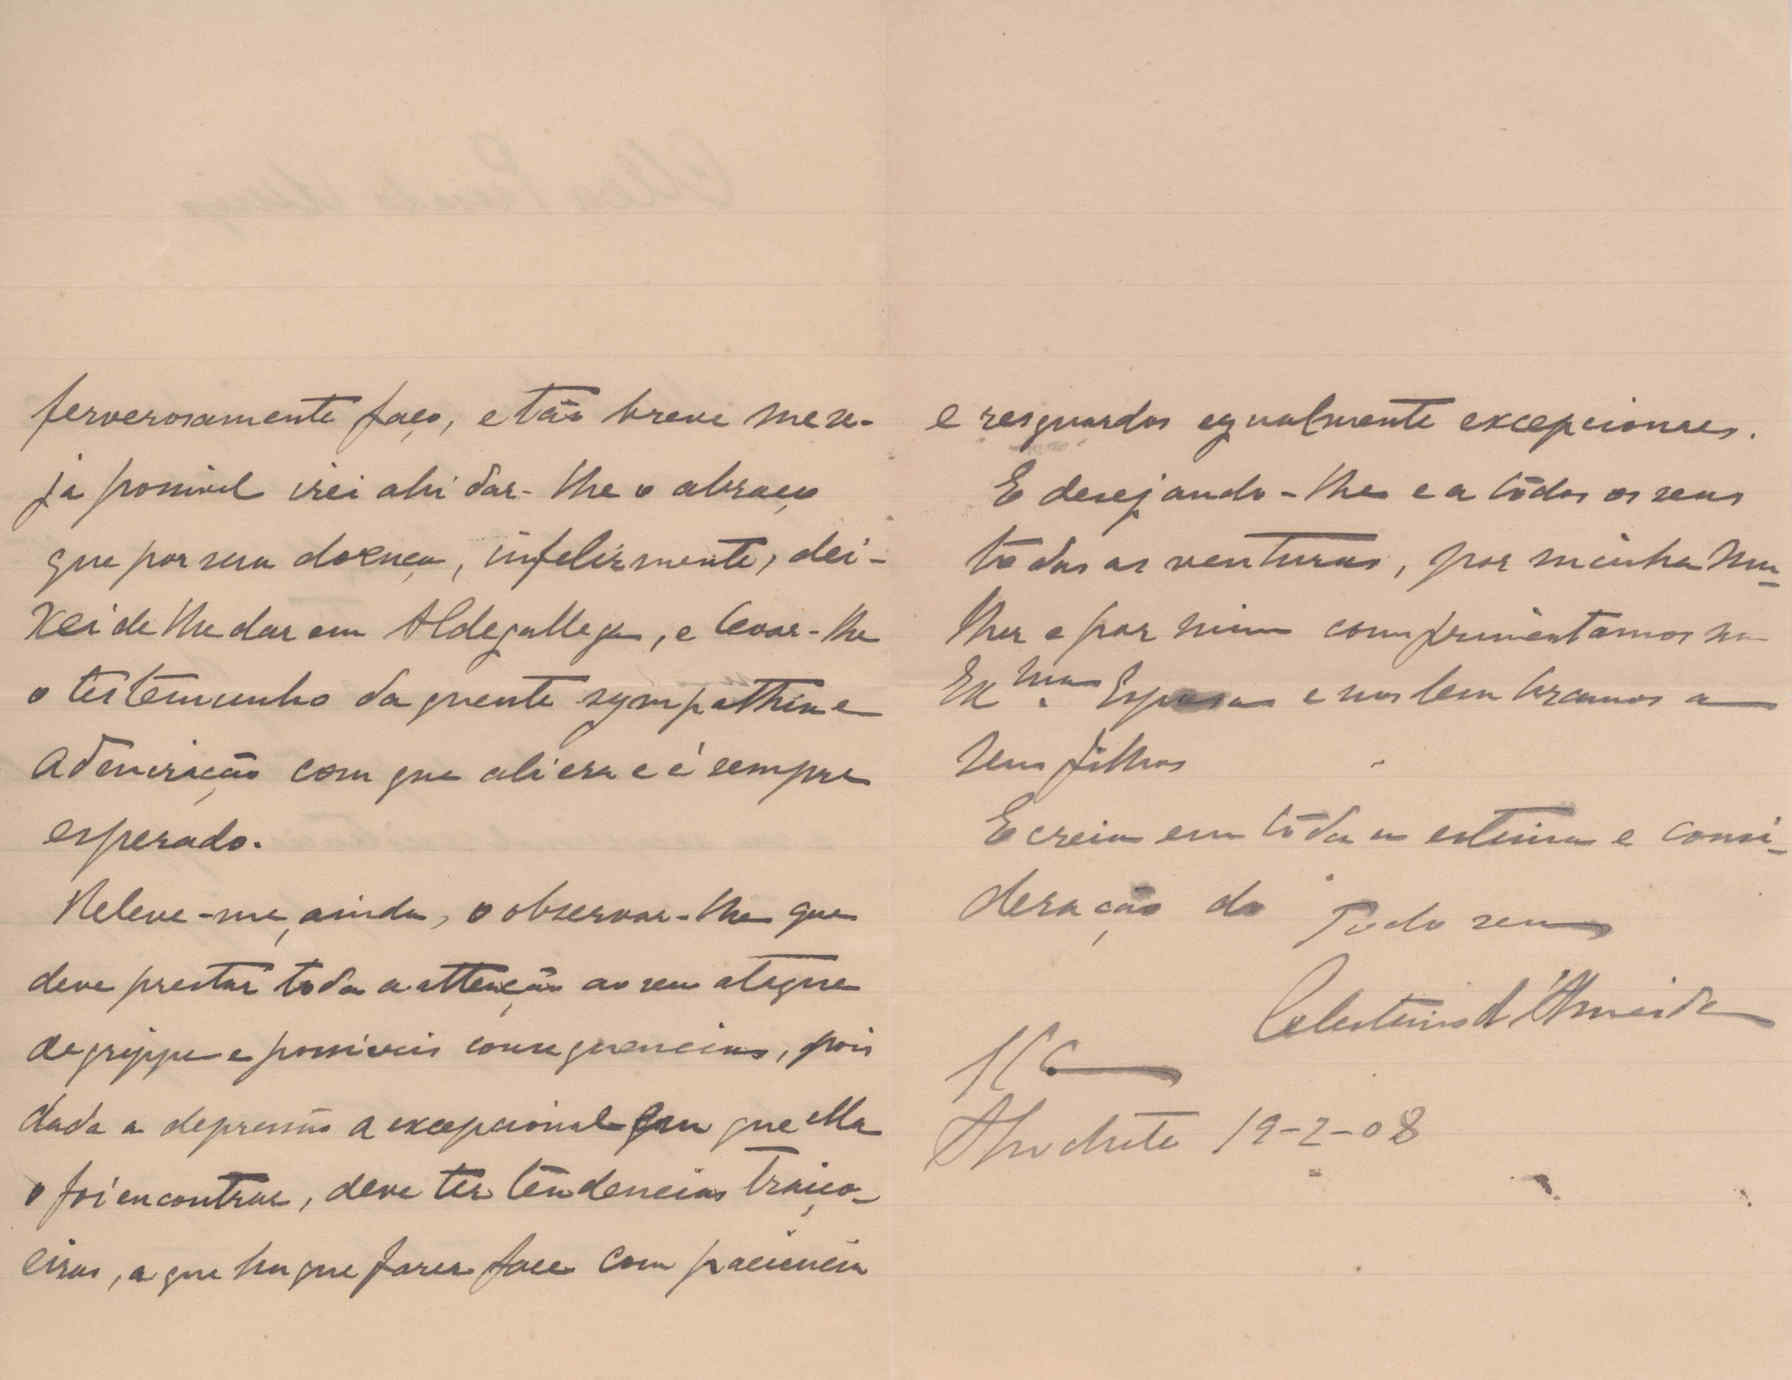 fervorosamente faço, e tão breve me se-
ja possivel irei ahi dar-lhe o abraço
que por sua doença, infelizmente, dei-
xei de lhe dar em Aldegallega, e levar-lhe
o testemunho da quente sympathia e
admiração com que ali era e é sempre
esperado.
Releve-me, ainda, o observar-lhe que
deve prestar toda a attenção ao seu ataque
de grippe e possiveis consequencias, pois
dada a depressão excepcional em que ella
o foi encontrar, deve ter tendencias traiço-
eiras, a que ha que fazer face com paciencia
e resguardos egualmente excepcionaes.
E desejando-lhe e a tôdos os seus
todas as venturas, por minha mu-
lher e por mim comprimentamos sua
Exma. Esposa e nos lembramos a
seus filhos
E creia em tôda a estima e consi-
deração do Todo seu
Celestino d'Almeida
S/C
Alcochete 19-2-08